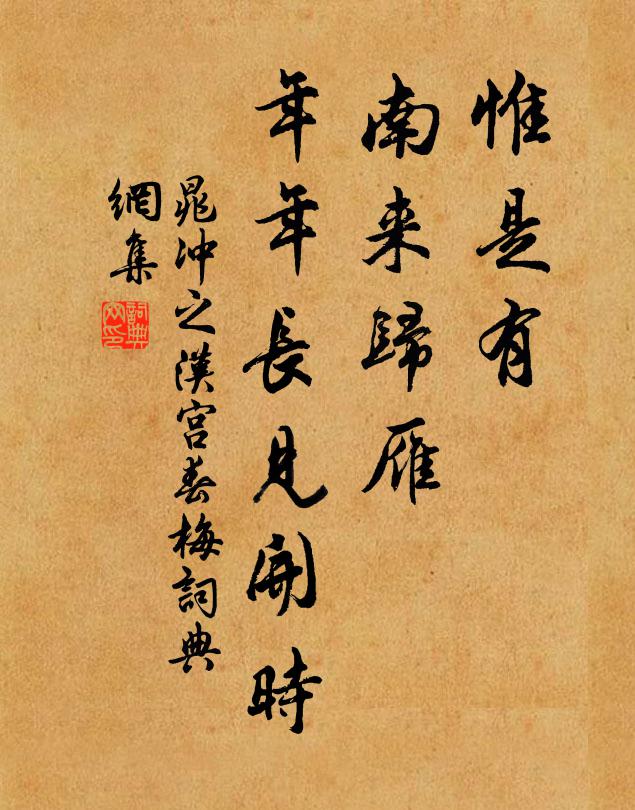 惟是有
南来歸雁
年年長見開時
晁冲之漢宫春梅詞典
網集
詞典